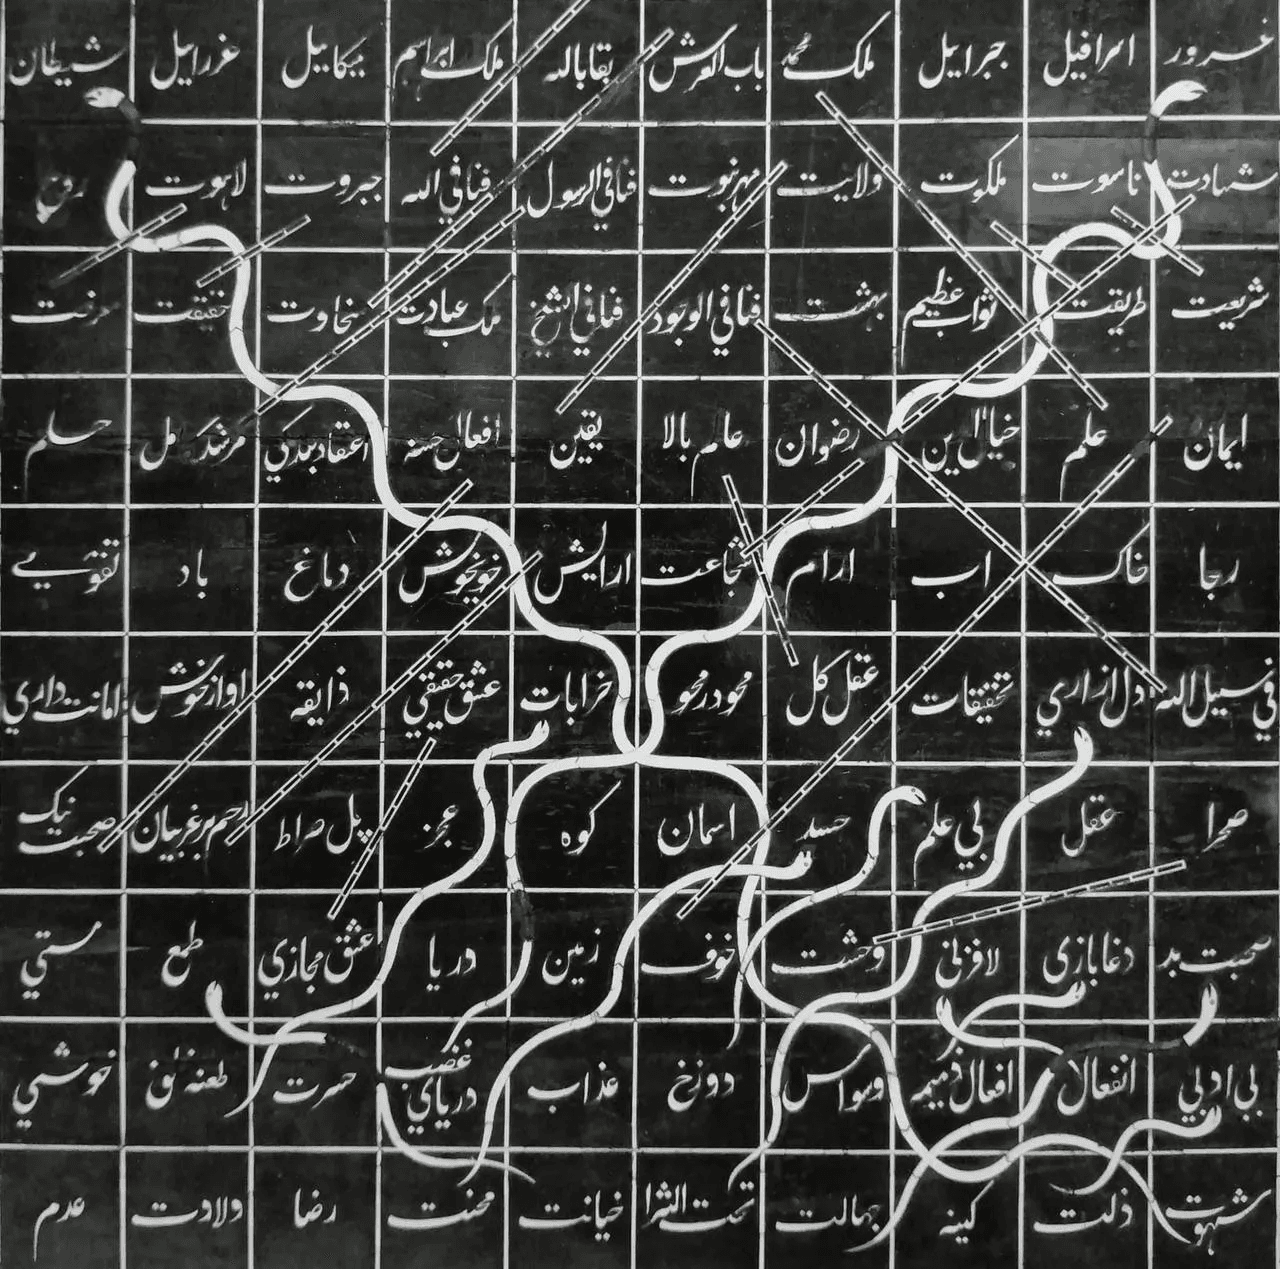 غرور اسرافیل جبراییل ملک محمد باب العرش بقابالله ملک ابراسم میکاییل غرراییل شیطان
شهادت ناسوت ملکوت ولایت مهرنبوت فنافي الرسول فنافي الله جبروت لاهوت روح
شریعت طریقت ثواب عظیم بهشت فنافي الوجود فنافي الشیخ ملک عبادت سخاوت حقیقت معرفت
ایمان علم رضوان عالم بالا یقین افعال حسنه اعتقاد بندکي مرشد کامل حلم
رجا خاک اب ارام شجاعت ارایش خویخوش دماغ باد تقویے
في سبیل الله دل ازاري تحقیقات عقل کل محودرمحو خرابات عشق حقیقي ذایقه اوازخوش امانت داري
صحرا عقل بي علم حسد اسمان کوه عجز پل صراط رحم برغریبان صحبت نیک
صحبت بد دغابازي لافزني وحشت خوف زمین دریا عشق مجازي طمع مستي
بي ادبي انفعال افعال ذمیمه وسواس دوزخ عذاب دریاي غضب حسرت طعنه زن خوشي
شهوت ذلت کینه جهالت تحت الثرا خیانت محنت رضا ولادت عدم